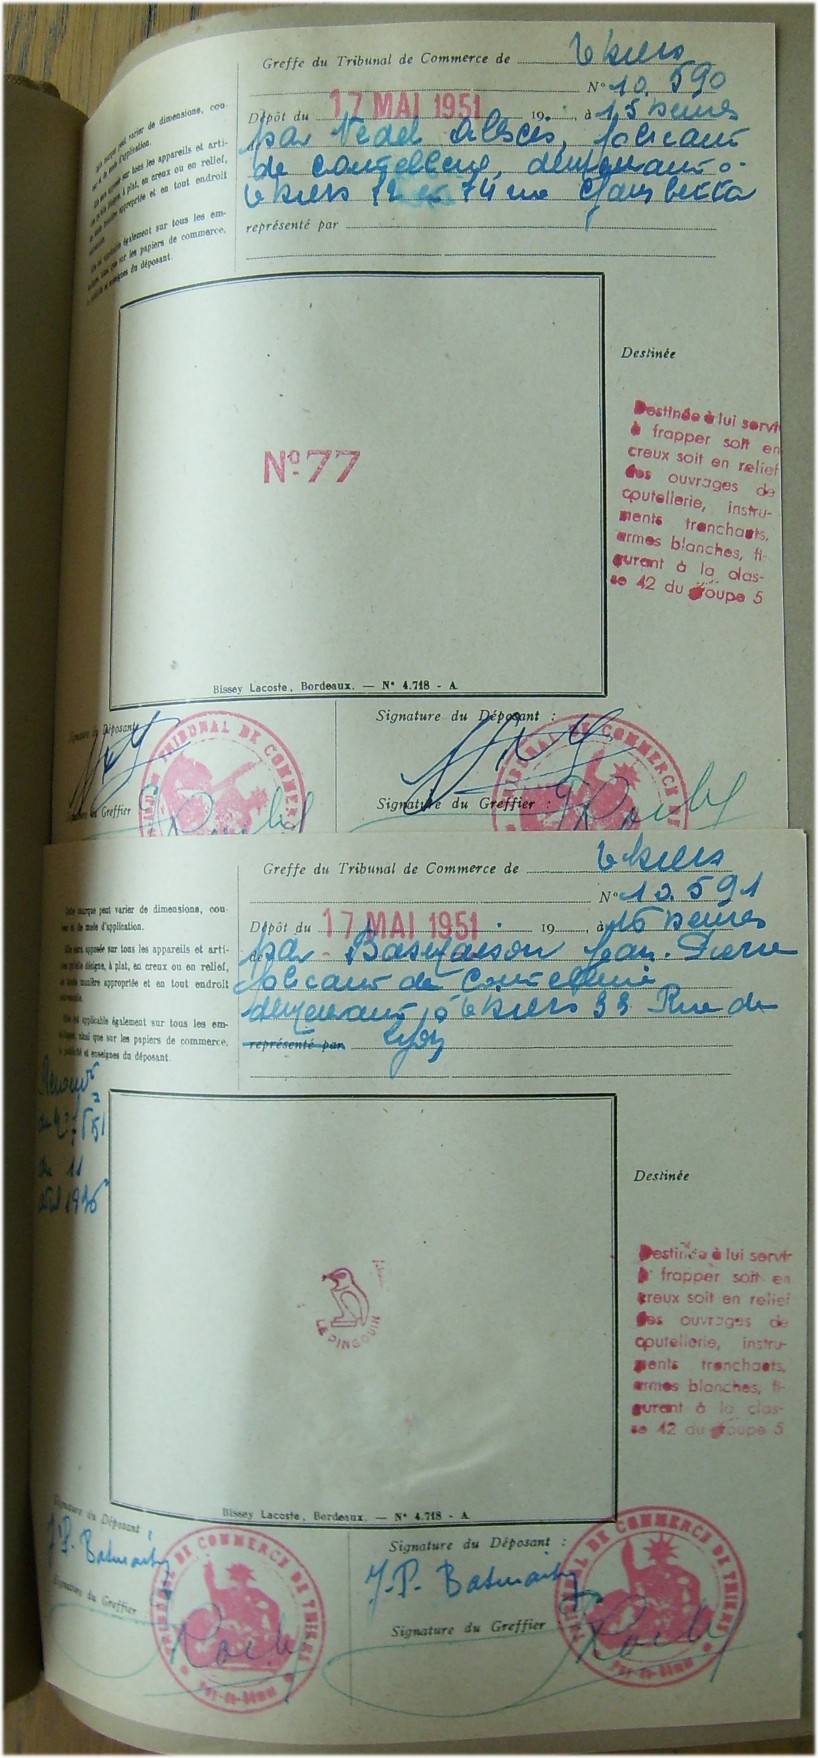 Greffe du Tribunal de Commerce de Thiers
N° 10.590
Dépôt du 17 MAI 1951 19 , à 15 heures
par Nedel , fabricant
de coutellerie, demeurant à
Thiers 72 et 74 rue Gambetta
représenté par
peut varier de dimensions, cou-
de mode d'application.
sur tous les appareils et arti-
à plat, en creux ou en relief,
appropriée et en tout endroit
également sur tous les em-
que sur les papiers de commerce,
et enseignes du déposant.
Destinée
Destinée à lui servir
à frapper soit en
creux soit en relief
des ouvrages de
coutellerie, instru-
ments tranchants,
armes blanches, fi-
gurant à la clas-
se 42 du groupe 5
N° 77
Bissey Lacoste, Bordeaux. — N° 4.718 - A
Signature du Déposant
Signature du Déposant :
Greffier
Signature du Greffier :
TRIBUNAL DE COMMERCE
TRIBUNAL DE COMMERCE
Greffe du Tribunal de Commerce de Thiers
N° 10.591
Dépôt du 17 MAI 1951 19 , à 15 heures
par Basmaison Jean-Pierre
fabricant de coutellerie
demeurant à Thiers 33 Rue de
Lyon
représenté par
Cette marque peut varier de dimensions, cou-
leur et de mode d'application.
Elle sera apposée sur tous les appareils et arti-
désigne, à plat, en creux ou en relief,
de toute manière appropriée et en tout endroit
convenable.
Elle est applicable également sur tous les em-
ballages, ainsi que sur les papiers de commerce,
de publicité et enseignes du déposant.
du 11
Destinée
Destinée à lui servir
à frapper soit en
creux soit en relief
des ouvrages de
coutellerie, instru-
ments tranchants,
armes blanches, fi-
gurant à la clas-
se 42 du groupe 5
LE PINGOUIN
Bissey Lacoste, Bordeaux. — N° 4.718 - A
Signature du Déposant :
J.P. Basmaison
Signature du Greffier
Signature du Déposant :
J.-P. Basmaison
Signature du Greffier
TRIBUNAL DE COMMERCE DE THIERS
Puy-de-Dôme
TRIBUNAL DE COMMERCE DE THIERS
Puy-de-Dôme